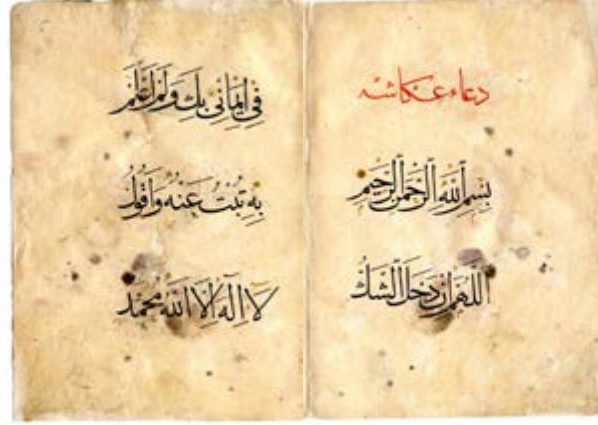 دعاء عكاشه
بِسْمِ اللهِ الرَّحْمنِ الرَّحِيمِ
اَللّهُمَّ اِنْ دَخَلَ الشَّكُّ
فِى اِيْمَانِى بِكَ وَلَمْ اَعْلَمْ
بِهِ تُبْتُ عَنْهُ وَاَقُولُ
لَا اِلَهَ اِلَّا اللهُ مُحَمَّدٌ